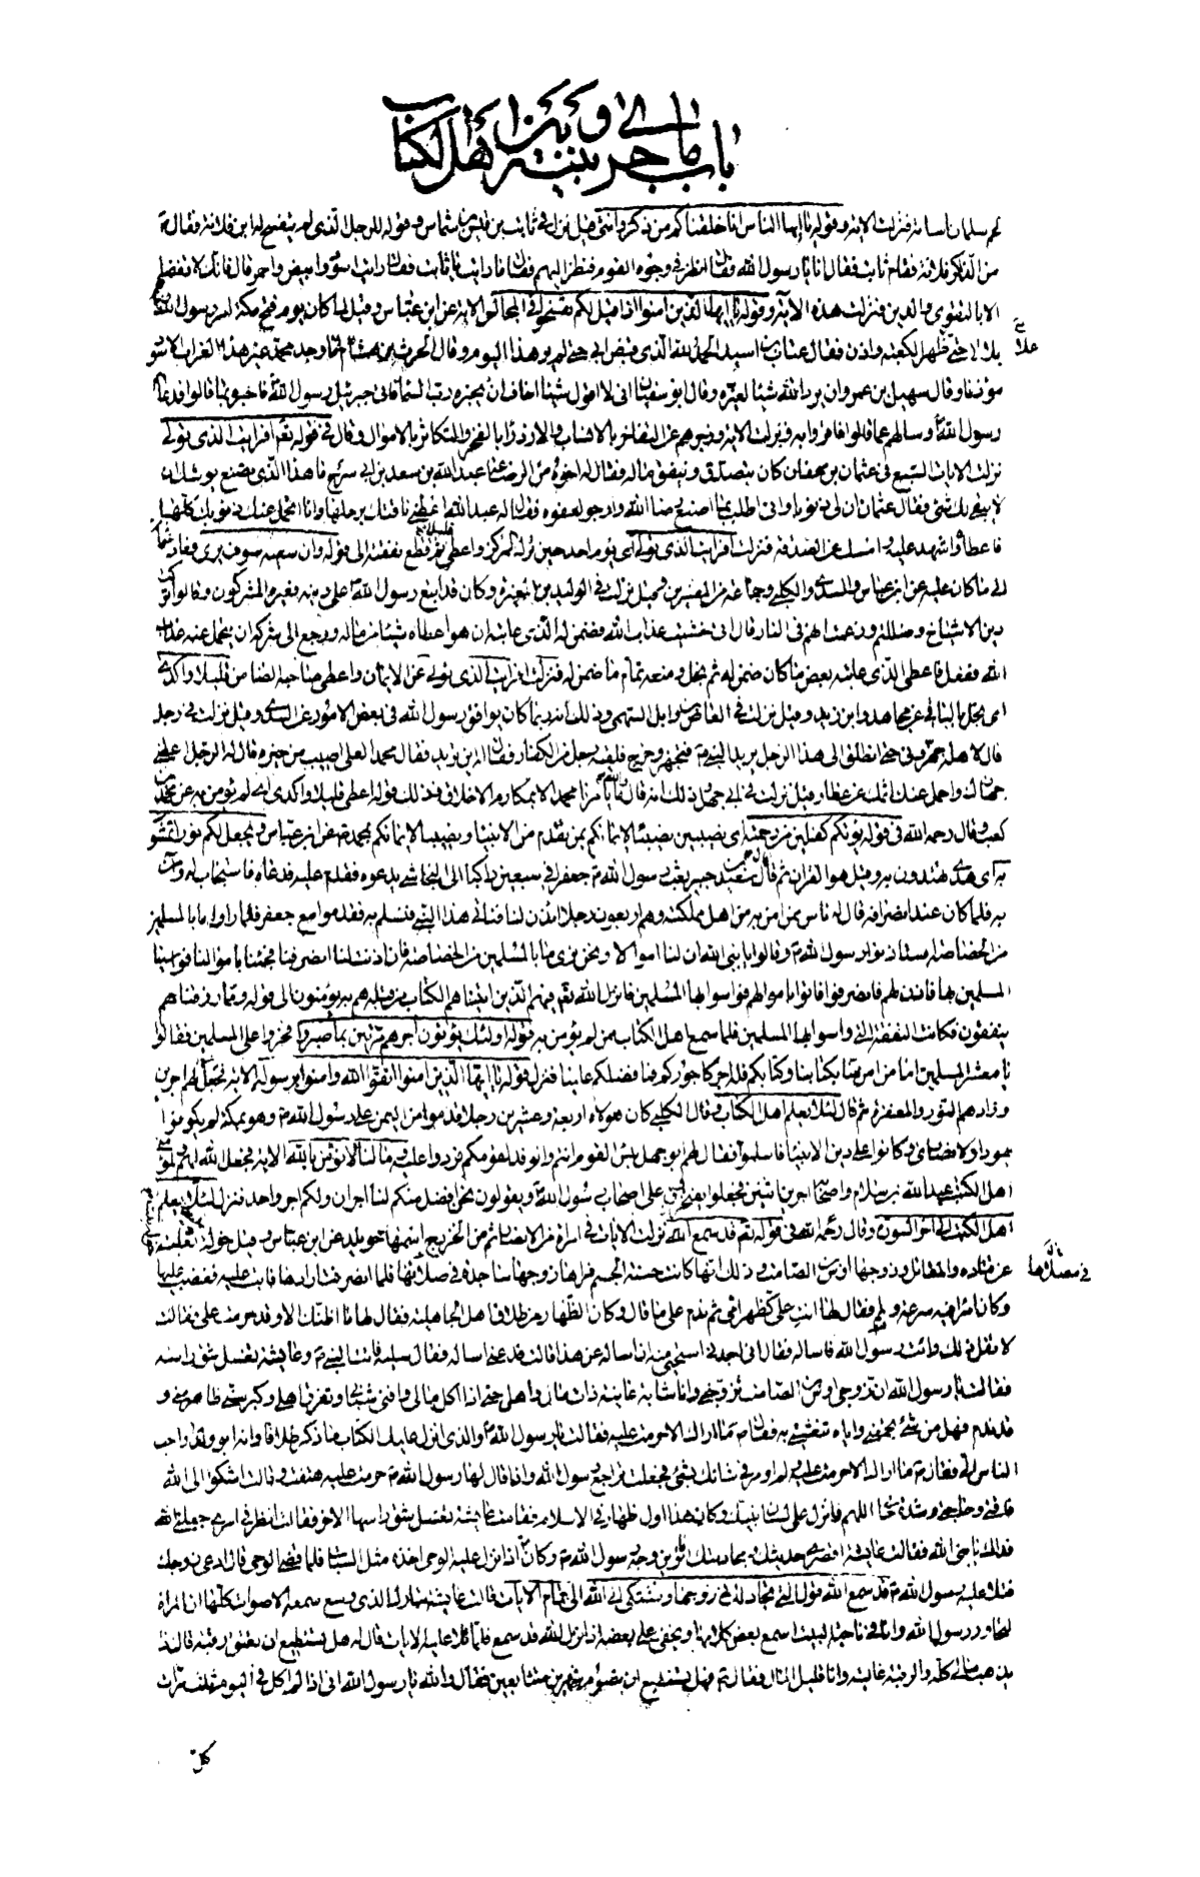 باب ما جرى بينه و بين اهل الكتاب
لهم سلمان اسامة فنزلت الاية و قوله يا ايها الناس انا خلقناكم من ذكر وانثى قيل نزل في ثابت بن قيس بن شماس و قوله للرجل الذي لم يتفسح له ابن فلانة فقال ص
من الذاكر فلانة فقام ثابت فقال انا يا رسول الله فقال انظر في وجوه القوم فنظر اليهم فقال ما رايت يا ثابت فقال رايت اسود وابيض واحمر قال فانك لا تفضلهم
الا بالتقوى والدين فنزلت هذه الاية و قوله يا ايها الذين امنوا اذا قيل لكم تفسحوا في المجالس الاية عن ابن عباس و قيل لما كان يوم فتح مكة امر رسول الله
بلالا حتى ظهر الكعبة واذن فقال عتاب بن اسيد الحمد لله الذي قبض ابي حتى لم ير هذا اليوم وقال الحرث بن هشام اما وجد محمد غير هذا الغراب الاسود
على
مؤذنا وقال سهيل بن عمرو ان يرد الله شيئا لغيره وقال ابو سفيان اني لا اقول شيئا اخاف ان يخبره رب السماء فاتى جبرئيل رسول الله فاخبره بما قالوا فدعاهم
رسول الله وسالهم عما قالوا فاقروا به ونزلت الاية وزجرهم عن التفاخر بالانساب والازراء بالفقر والتكاثر بالاموال وقال في قوله تعم افرايت الذي تولى
نزلت الايات السبع في عثمان بن عفان كان يتصدق وينفق ماله فقال له اخوه من الرضاعة عبد الله بن سعد بن ابي سرح ما هذا الذي تصنع يوشك ان
لا يبقى لك شئ فقال عثمان ان لي ذنوبا واني اطلب بما اصنع رضا الله وارجو عفوه فقال له عبد الله اعطني ناقتك برحلها وانا اتحمل عنك ذنوبك كلها
فاعطاه واشهد عليه وامسك عن الصدقة فنزلت افرايت الذي تولى اي يوم احد حين ترك المركز واعطى قليلا ثم قطع نفقته الى قوله وان سعيه سوف يرى فعاد عثمان
الى ما كان عليه عن ابن عباس والسدي والكلبي وجماعة من المفسرين وقيل نزلت في الوليد بن المغيرة وكان قد اتبع رسول الله على دينه فعيره المشركون وقالوا تركت
دين الاشياخ وضللتهم وزعمت انهم في النار قال اني خشيت عذاب الله فضمن له الذي عاتبه ان هو اعطاه شيئا من ماله ورجع الى شركه ان يتحمل عنه عذاب
الله ففعل فاعطى الذي عاتبه بعض ما كان ضمن له ثم بخل ومنعه تمام ما ضمن له فنزلت افرايت الذي تولى عن الايمان واعطى صاحبه الضامن قليلا واكدى
اي بخل بالباقي عن مجاهد وابن زيد وقيل نزلت في العاص بن وائل السهمي وذلك انه ربما كان يوافق رسول الله في بعض الامور عن السدي وقيل نزلت في رجل
قال لاهله جهزوني حتى انطلق الى هذا الرجل يريد النبي ص فتجهز وخرج فلقيه رجل من الكفار فقال له اين تريد فقال محمدا لعلي اصيب من خيره قال له الرجل اعطني
جهازك واحمل عنك اثمك عن عطا وقيل نزلت في ابي جهل وذلك انه قال والله ما يامرنا محمد الا بمكارم الاخلاق فذلك قوله اعطى قليلا واكدى اي لم يؤمن به عن محمد بن
كعب وقال رحمه الله في قوله يؤتكم كفلين من رحمته اي نصيبين نصيبا لايمانكم بمن تقدم من الانبيا ونصيبا لايمانكم بمحمد ص عن ابن عباس ويجعل لكم نورا تمشون
به اي هدى تهتدون به وقيل هو القران ثم قال قال سعيد بن جبير بعث رسول الله ص جعفرا في سبعين راكبا الى النجاشي يدعوه فقدم عليه فدعاه فاستجاب له وامن
به فلما كان عند انصرافه قال له ناس ممن امن به من اهل مملكته وهم اربعون رجلا ائذن لنا فناتي هذا النبي فنسلم به فقدموا مع جعفر فلما راوا ما بالمسلمين
من الخصاصة استاذنوا رسول الله ص وقالوا يا نبي الله ان لنا اموالا ونحن نرى ما بالمسلمين من الخصاصة فان اذنت لنا انصرفنا فجئنا باموالنا فواسينا
المسلمين بها فاذن لهم فانصرفوا فاتوا باموالهم فواسوا بها المسلمين فانزل الله تعم فيهم الذين اتيناهم الكتاب من قبله هم به يؤمنون الى قوله ومما رزقناهم
ينفقون فكانت النفقة التي واسوا بها المسلمين فلما سمع اهل الكتاب ممن لم يؤمن به قوله اولئك يؤتون اجرهم مرتين بما صبروا فخروا على المسلمين فقالوا
يا معشر المسلمين اما من امن منا بكتابنا وكتابكم فله اجر كاجوركم فما فضلكم علينا فنزل قوله يا ايها الذين امنوا اتقوا الله وامنوا برسوله الاية فجعل لهم اجرين
وزادهم النور والمغفرة ثم قال لئلا يعلم اهل الكتاب وقال الكلبي كان هؤلاء اربعة وعشرين رجلا قدموا من اليمن على رسول الله ص وهو بمكة لم يكونوا
يهودا ولا نصارى وكانوا على دين الانبيا فاسلموا فقال لهم ابو جهل بئس القوم انتم والوفد لقومكم فردوا عليه وما لنا لا نؤمن بالله الاية فجعل الله لهم ولمؤمني
اهل الكتب عبد الله بن سلام واصحابه اجرين اثنين فجعلوا يفخرون على اصحاب رسول الله ويقولون نحن افضل منكم لنا اجران ولكم اجر واحد فنزل لئلا يعلم
اهل الكتب الى اخر السورة وقال رحمه الله في قوله تعم قد سمع الله نزلت الايات في امراة من الانصار ثم من الخزرج اسمها خويلة عن ابن عباس وقيل خولة بنت ثعلبة
عن قتادة والمقاتل وزوجها اوس بن الصامت وذلك انها كانت حسنة الجسم فراها زوجها ساجدة في صلاتها فلما انصرفت ارادها فابت عليه فغضب عليها
في صلاتها
وكان امرا فيه سرعة ولمم فقال لها انت علي كظهر امي ثم ندم على ما قال وكان الظهار من طلاق اهل الجاهلية فقال لها ما اظنك الا وقد حرمت علي فقالت
لا تقل ذلك وائت رسول الله فاساله فقال اني اجدني استحيي منه ان اساله عن هذا قالت فدعني اساله فقال سليه فاتت النبي ص وعايشة تغسل شق راسه
فقالت يا رسول الله ان زوجي اوس بن الصامت تزوجني وانا شابة غانية ذات مال واهل حتى اذا اكل مالي وافنى شبابي وتفرق اهلي وكبر سني ظاهر مني و
قد ندم فهل من شئ يجمعني واياه تنعشني به فقال ص ما اراك الا حرمت عليه فقالت يا رسول الله والذي انزل عليك الكتاب ما ذكر طلاقا وانه ابو ولدي واحب
الناس الي فقال ص ما اراك الا حرمت عليه ولم اومر في شانك بشئ فجعلت تراجع رسول الله واذا قال لها رسول الله ص حرمت عليه هتفت وقالت اشكو الى الله
فاقتي وحاجتي وشدة حالي اللهم فانزل على لسان نبيك وكان هذا اول ظهار في الاسلام فقامت عايشة تغسل شق راسها الاخر فقالت انظر في امري جعلني الله
فداك يا نبي الله فقالت عايشة اقصري حديثك ومجادلتك اما ترين وجه رسول الله ص وكان اذا نزل عليه الوحي اخذه مثل السبات فلما قضي الوحي قال ادعي زوجك
فتلا عليه رسول الله ص قد سمع الله قول التي تجادلك في زوجها وتشتكي الى الله الى تمام الايات قالت عايشة تبارك الذي وسع سمعه الاصوات كلها ان المراة
لتحاور رسول الله وانا في ناحية البيت اسمع بعض كلامها ويخفى علي بعضه اذ انزل الله قد سمع فلما تلا عليه الايات قال له هل تستطيع ان تعتق رقبة قال اذا
يذهب مالي كله والرقبة غالية وانا قليل المال فقال ص فهل تستطيع ان تصوم شهرين متتابعين فقال والله يا رسول الله اني اذا لم اكل في اليوم ثلث مرات
كل